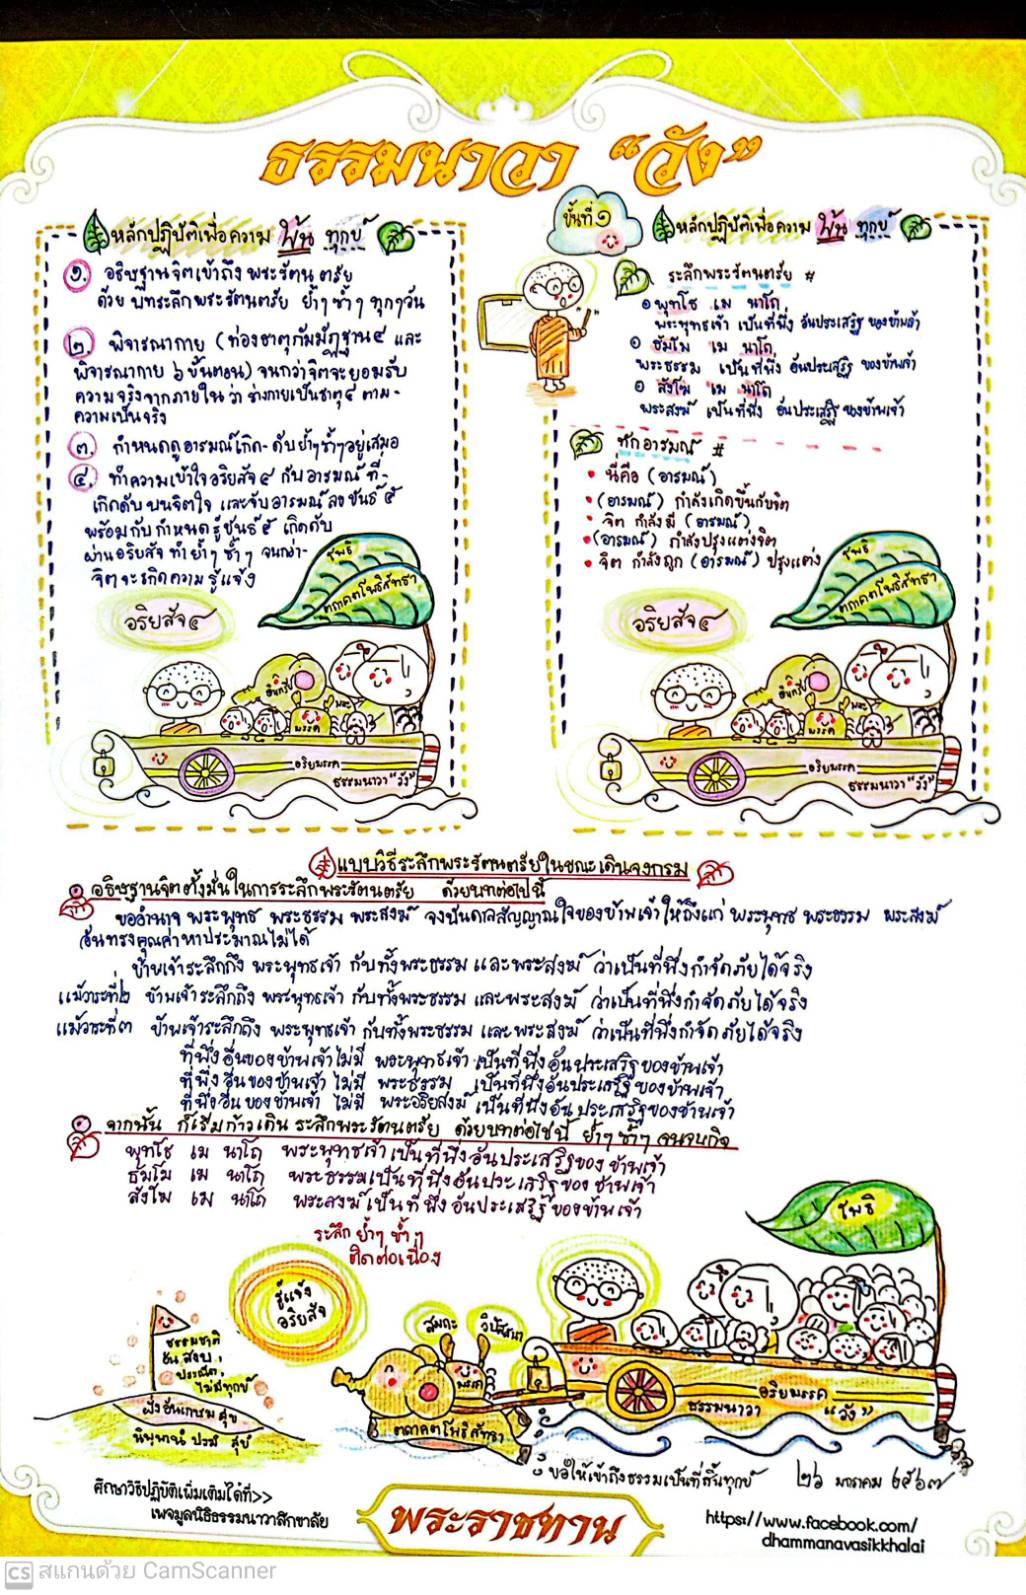 ธรรมนาวา “วัง”
หลักปฏิบัติเพื่อความ พ้น ทุกข์
๑. อธิษฐานจิตเข้าถึง พระรัตนตรัย
ด้วย บทระลึกพระรัตนตรัย ย้ำๆ ซ้ำๆ ทุกๆวัน
๒. พิจารณากาย (ท่องธาตุกัมมัฏฐาน๔ และ
พิจารณากาย ๖ ขั้นตอน) จนกว่าจิตจะยอมรับ
ความจริงจากภายในว่า ร่างกายเป็นธาตุ๔ ตาม-
ความเป็นจริง
๓. กำหนดดูอารมณ์เกิด-ดับย้ำๆซ้ำๆอยู่เสมอ
๔. ทำความเข้าใจอริยสัจ๔ กับอารมณ์ ที่-
เกิดดับ บนจิตใจ และจับอารมณ์ลงขันธ์ ๕
พร้อมกับ กำหนดรู้ขันธ์๕ เกิดดับ
ผ่านอริยสัจ ทำย้ำๆ ซ้ำๆ จนกว่า-
จิตจะเกิดความรู้แจ้ง
โพธิ
ตถาคตโพธิสัทธา
อริยสัจ๔
อินทรีย์
พละ
มรรค
อริยมรรค
ธรรมนาวา "วัง"
ขั้นที่ ๑
หลักปฏิบัติเพื่อความ พ้น ทุกข์
ระลึกพระรัตนตรัย #
พุทโธ เม นาโถ
พระพุทธเจ้า เป็นที่พึ่ง อันประเสริฐ ของข้าพเจ้า
ธัมโม เม นาโถ
พระธรรม เป็นที่พึ่ง อันประเสริฐ ของข้าพเจ้า
สังโฆ เม นาโถ
พระสงฆ์ เป็นที่พึ่ง อันประเสริฐ ของข้าพเจ้า
ทักอารมณ์ #
• นี่คือ (อารมณ์)
• (อารมณ์) กำลังเกิดขึ้นกับจิต
• จิต กำลังมี (อารมณ์)
• (อารมณ์) กำลังปรุงแต่งจิต
• จิต กำลังถูก (อารมณ์) ปรุงแต่ง
โพธิ
ตถาคตโพธิสัทธา
อริยสัจ๔
อินทรีย์
พละ
มรรค
อริยมรรค
ธรรมนาวา "วัง"
แบบวิธีระลึกพระรัตนตรัยในขณะเดินจงกรม
อธิษฐานจิตตั้งมั่นในการระลึกพระรัตนตรัย ด้วยบทต่อไปนี้
ขออำนาจ พระพุทธ พระธรรม พระสงฆ์ จงบันดาลสัญญาณใจของข้าพเจ้า ให้ถึงแก่ พระพุทธ พระธรรม พระสงฆ์
อันทรงคุณค่าหาประมาณไม่ได้
ข้าพเจ้าระลึกถึง พระพุทธเจ้า กับทั้งพระธรรม และพระสงฆ์ ว่าเป็นที่พึ่งกำจัดภัยได้จริง
แม้วาระที่๒ ข้าพเจ้าระลึกถึง พระพุทธเจ้า กับทั้งพระธรรม และพระสงฆ์ ว่าเป็นที่พึ่งกำจัดภัยได้จริง
แม้วาระที่๓ ข้าพเจ้าระลึกถึง พระพุทธเจ้า กับทั้งพระธรรม และพระสงฆ์ ว่าเป็นที่พึ่งกำจัดภัยได้จริง
ที่พึ่งอื่นของข้าพเจ้าไม่มี พระพุทธเจ้า เป็นที่พึ่งอันประเสริฐของข้าพเจ้า
ที่พึ่งอื่นของข้าพเจ้า ไม่มี พระธรรม เป็นที่พึ่งอันประเสริฐของข้าพเจ้า
ที่พึ่งอื่นของข้าพเจ้า ไม่มี พระอริยสงฆ์ เป็นที่พึ่งอันประเสริฐของข้าพเจ้า
จากนั้น ก็เริ่มก้าวเดิน ระลึกพระรัตนตรัย ด้วยบทต่อไปนี้ ย้ำๆ ซ้ำๆ จนจบกิจ
พุทโธ เม นาโถ พระพุทธเจ้าเป็นที่พึ่งอันประเสริฐของข้าพเจ้า
ธัมโม เม นาโถ พระธรรมเป็นที่พึ่งอันประเสริฐของข้าพเจ้า
สังโฆ เม นาโถ พระสงฆ์เป็นที่พึ่งอันประเสริฐของข้าพเจ้า
ระลึก ย้ำๆ ซ้ำๆ
ติดต่อเนื่อง
โพธิ
รู้แจ้ง
อริยสัจ
สมถะ
วิปัสสนา
มรรค
ธรรมชาติ
อัน สงบ,
ประณีต,
ไม่มีทุกข์
ฝั่งอันเกษม สุข
นิพพานํ ปรมํ สุขํ
ตถาคตโพธิสัทธา
อริยมรรค
ธรรมนาวา "วัง"
ขอให้เข้าถึงธรรมเป็นที่สิ้นทุกข์ ๒๖ มกราคม ๒๕๖๗
ศึกษาวิธีปฏิบัติเพิ่มเติมได้ที่>>
เพจมูลนิธิธรรมนาวาสิกขาลัย
พระราชทาน
https://www.facebook.com/
dhammanavasikkhalai
CS สแกนด้วย CamScanner